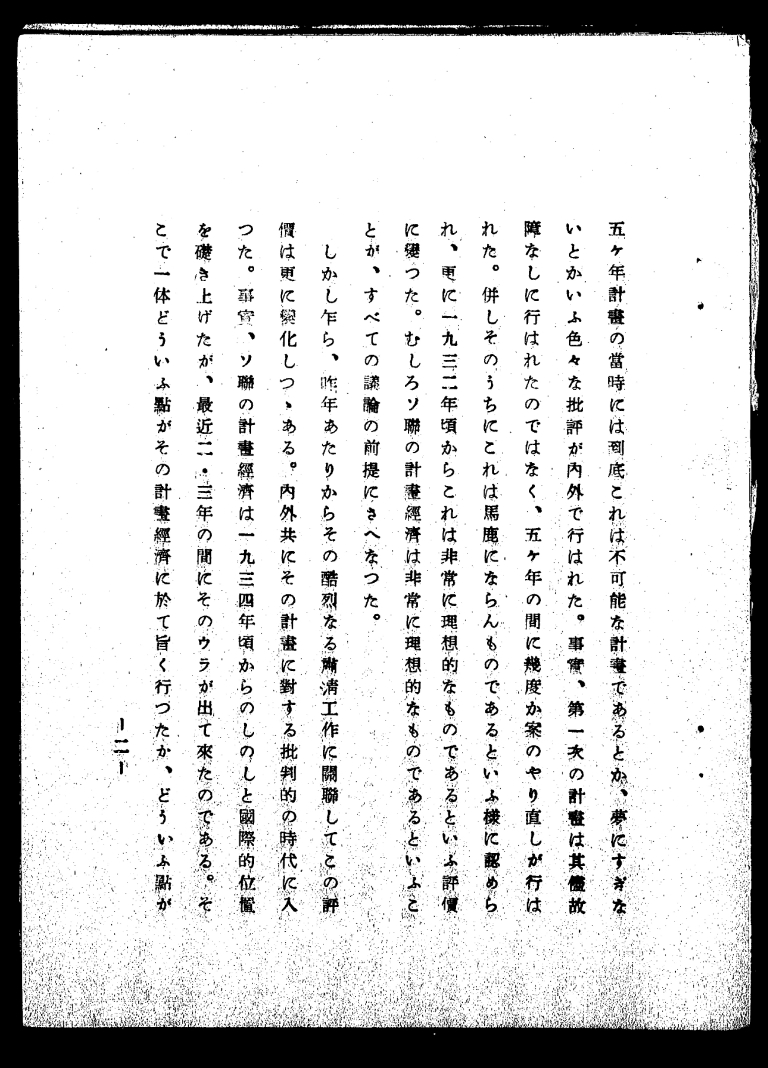 五ケ年計畫の當時には到底これは不可能な計畫であるとか、夢にすぎな
いとかいふ色々な批評が內外で行はれた。事實、第一次の計畫は其儘故
障なしに行はれたのではなく、五ケ年の間に幾度か案のやり直しが行は
れた。併しそのうちにこれは馬鹿にならんものであるといふ樣に認めら
れ、更に一九三二年頃からこれは非常に理想的なものであるといふ評價
に變つた。むしろソ聯の計畫經濟は非常に理想的なものであるといふこ
とが、すべての議論の前提にさへなつた。
しかし乍ら、昨年あたりからその酷烈なる肅淸工作に關聯してこの評
價は更に變化しつゝある。內外共にその計畫に對する批判的の時代に入
つた。事實、ソ聯の計畫經濟は一九三四年頃からのしのしと國際的位置
を礎き上げたが、最近二・三年の間にそのウラが出て來たのである。そ
こで一体どういふ點がその計畫經濟に於て旨く行づたか、どういふ點が
—二—